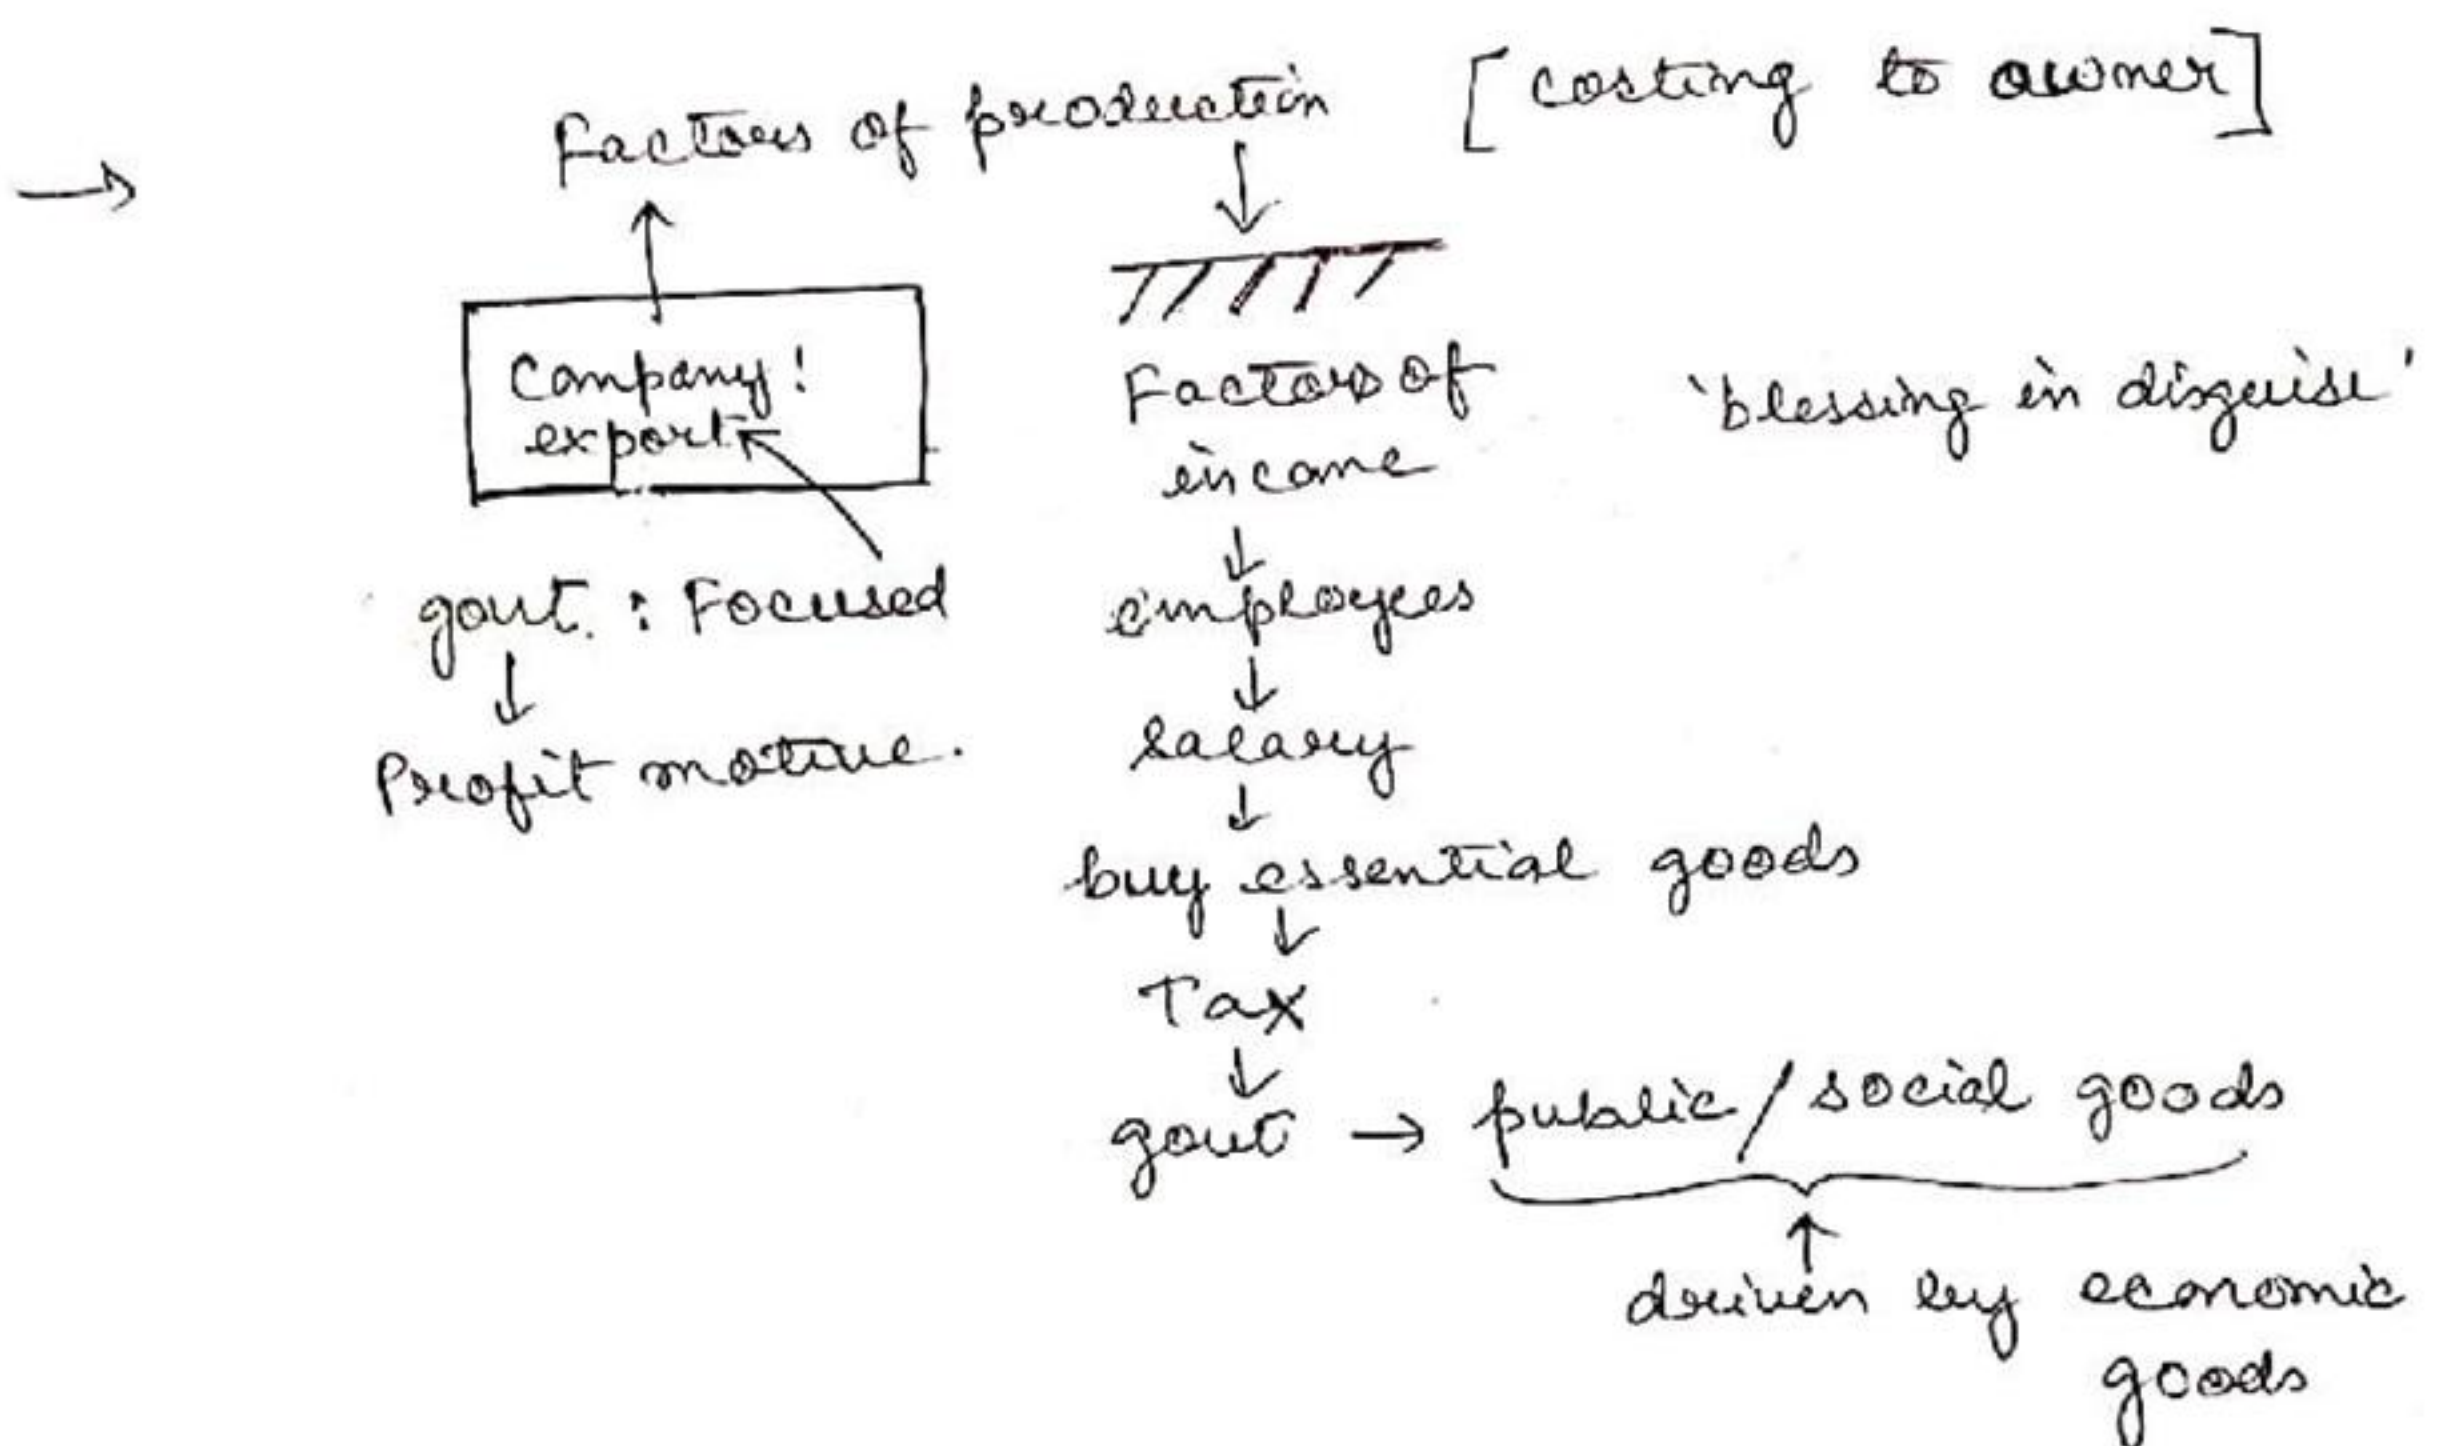 → Factors of production [costing to owner]
↑ ↓
Company:
export
Factors of
income
'blessing in disguise'
govt. : Focused
↓
Profit motive.
↓
employees
↓
salary
↓
buy essential goods
↓
Tax
↓
govt → public/social goods
↑
driven by economic
goods